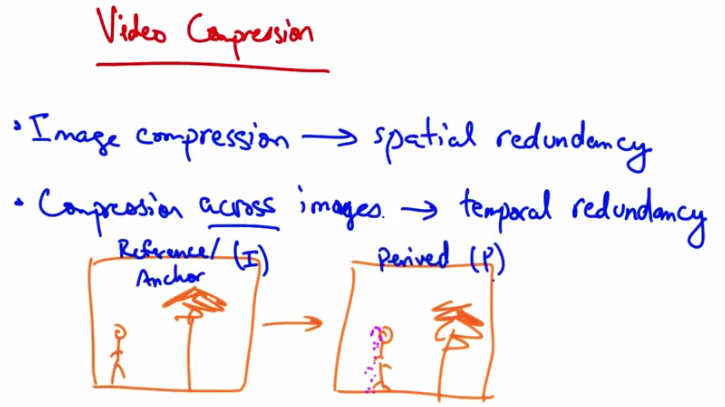 Video Compression
• Image compression → spatial redundancy
• Compression across images. → temporal redundancy
Reference/ (I)
Anchor
Derived (P)